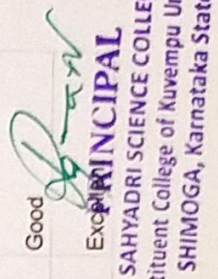 Good
Excellent
PRINCIPAL
SAHYADRI SCIENCE COLLE
tituent College of Kuvempu Un
SHIMOGA, Karnataka State